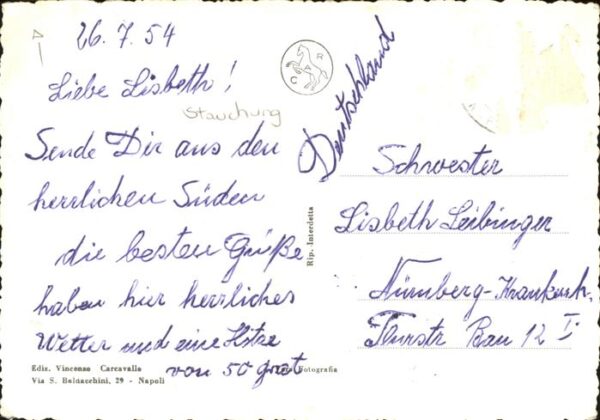 26. 7. 54
Liebe Lisbeth!
Stauchung
Sende Dir aus den
herrlichen Süden
die besten Grüße
haben hier herrliches
Wetter und eine Hitze
von 50 grat
Ediz. Vincenzo Carcavallo
Via S. Baldacchini, 29 - Napoli
Fotografia
Rip. Interdetta
C R
Deutschland
Schwester
Lisbeth Leibinger
Nürnberg-Krankenh.
Bau 12 I